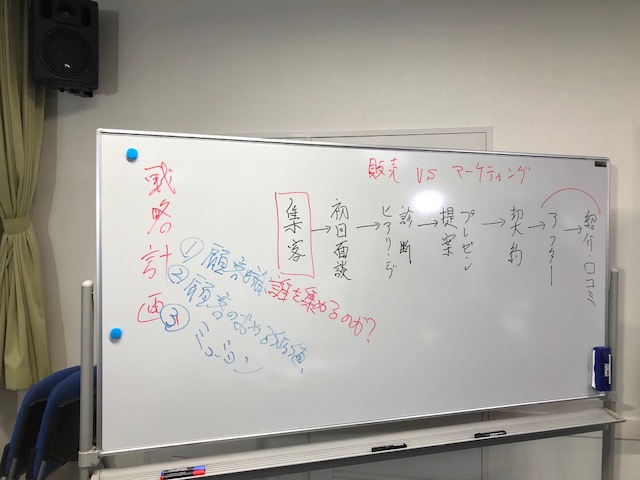 戦略計画
販売 VS マーケティング
集客→初回面談→診断 ヒアリング→提案 プレゼン→契約→アフター→紹介・口コミ
① 顧客
誰を集めるのか?
② 顧客の求める価値
③ ミッション